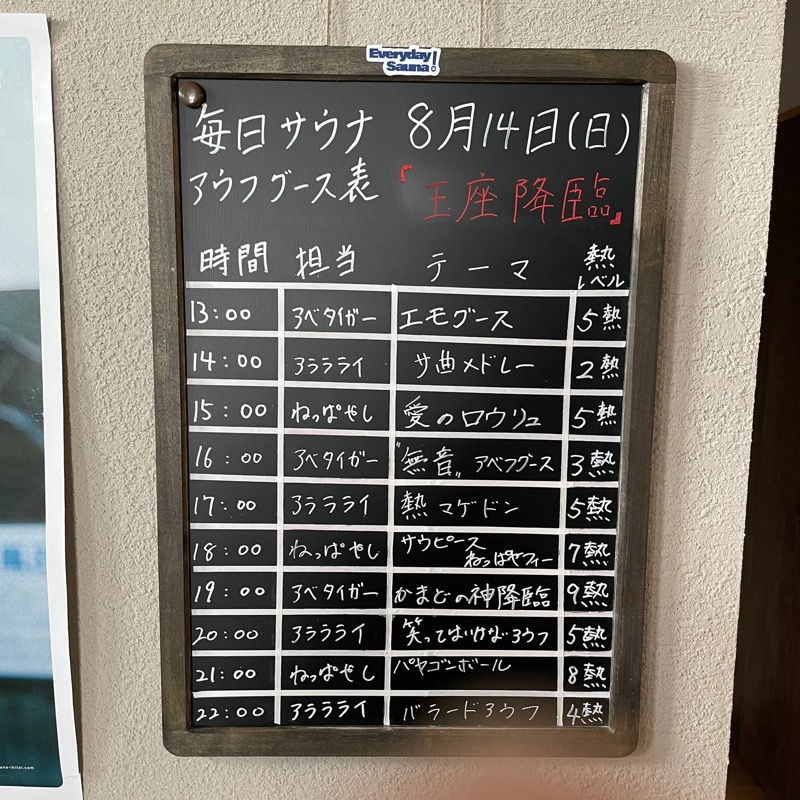 Everyday
Sauna!
毎日サウナ 8月14日(日)
アウフグース表 『玉座降臨』
時間 担当 テーマ 熱レベル
13:00 アベタイガー エモグース 5熱
14:00 アラララライ サ曲メドレー 2熱
15:00 ねっぱやし 愛のロウリュ 5熱
16:00 アベタイガー "無音" アベフグース 3熱
17:00 アララライ 熱マゲドン 5熱
18:00 ねっぱやし サウピースねっぱやフィー 7熱
19:00 アベタイガー かまどの神降臨 9熱
20:00 アララライ 笑ってはいけないアウフ 5熱
21:00 ねっぱやし パヤゴンボール 8熱
22:00 アララライ バラードアウフ 4熱
una-ikitai.com